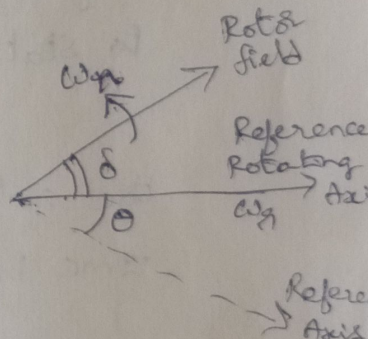 Rotor
field
ωm
δ
Reference
Rotating
Axi
ωs
θ
Refere
Axis